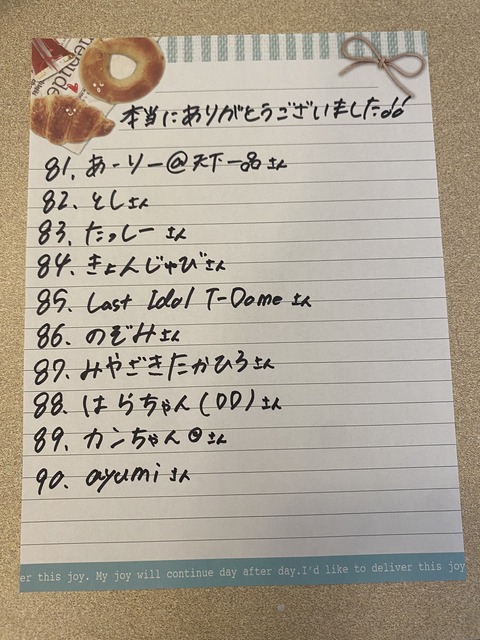 本当にありがとうございました
81. あーりー@天下一品さん
82. としさん
83. たっしーさん
84. きょんじゃびさん
85. Last Idol T-Domeさん
86. のぞみさん
87. みやざきたかひろさん
88. はらちゃん(DD)さん
89. カンちゃんさん
90. ayumiさん
er this joy. My joy will continue day after day.I'd like to deliver this joy